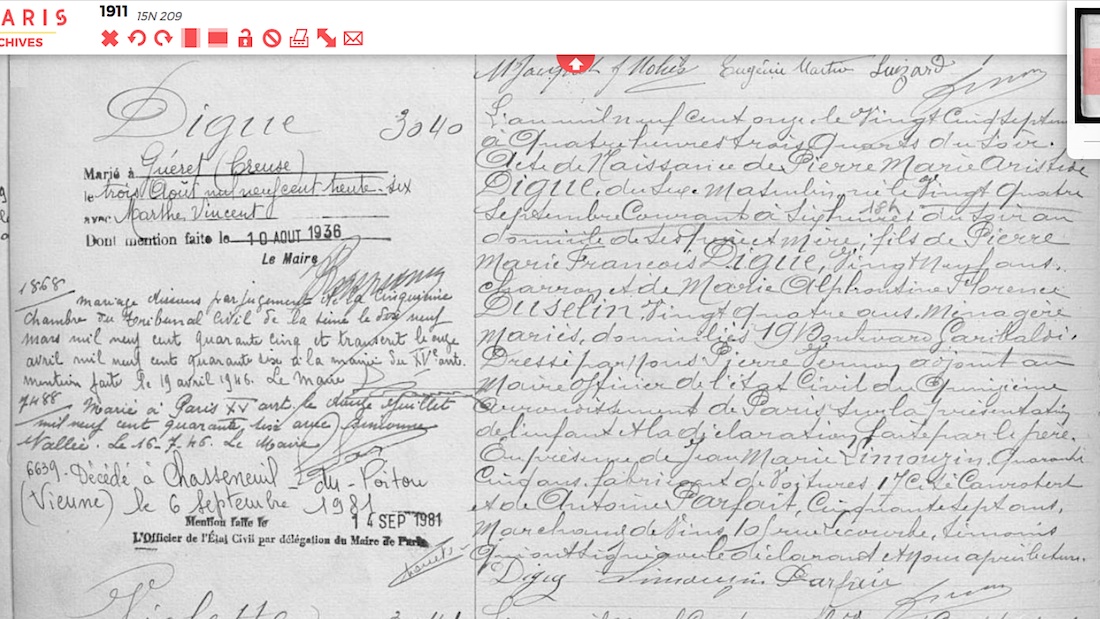 ARIS
CHIVES
1911 15N 209
Digue 3040
Marié à Guéret (Creuse)
le trois Août mil neuf cent trente-six
avec Marthe Vincent
Dont mention faite le 10 AOUT 1936
Le Maire
1868
mariage dissous par jugement de la Cinquième
chambre du Tribunal Civil de la Seine le dix neuf
mars mil neuf cent quarante cinq et transcrit le onze
avril mil neuf cent quarante six à la mairie du XVe arrt.
mention faite le 19 avril 1946. Le Maire
7488
Marié à Paris XV arrt. le Juillet
mil neuf cent quarante six avec Simonne
Vallée. Le 16-7-46. Le Maire
6639. Décédé à Chasseneuil-du-Poitou
(Vienne) le 6 septembre 1981
Mention faite le 14 SEP 1981
L'Officier de l'État Civil par délégation du Maire de Paris
Violette
M Jacquet Eugénie Martin Luizard
L'an mil neuf cent onze le Vingt Cinq Septem
à Quatre heures trois Quarts du Soir.
Acte de Naissance de Pierre Marie Aristide
DIGUE, du Sexe Masculin, né le Vingt quatre
Septembre Courant à Six heures 18h du Soir au
domicile de ses père et mère; fils de Pierre
Marie Francois DIGUE, Vingt Neuf ans.
Charron et de Marie Alphonsine Florence
DUSELIN, Vingt quatre ans. Ménagère
Mariés, domiciliés 19 Boulevard Garibaldi.
Dressé par Nous Pierre Vernoy adjoint au
Maire Officier de l'État Civil du Quinzième
Arrondissement de Paris sur la présentation
de l'enfant et la déclaration faite par le père.
En présence de Jean Marie Limouzin. Quarante
Cinq ans, fabricant de Voitures 17 Cité Canrobert
et de Antoine Parfait, Cinquante sept ans,
Marchand de Vins, 10 rue Lecourbe, témoins
Qui ont signé avec le déclarant et Nous après lecture.
Digue Limouzin Parfait